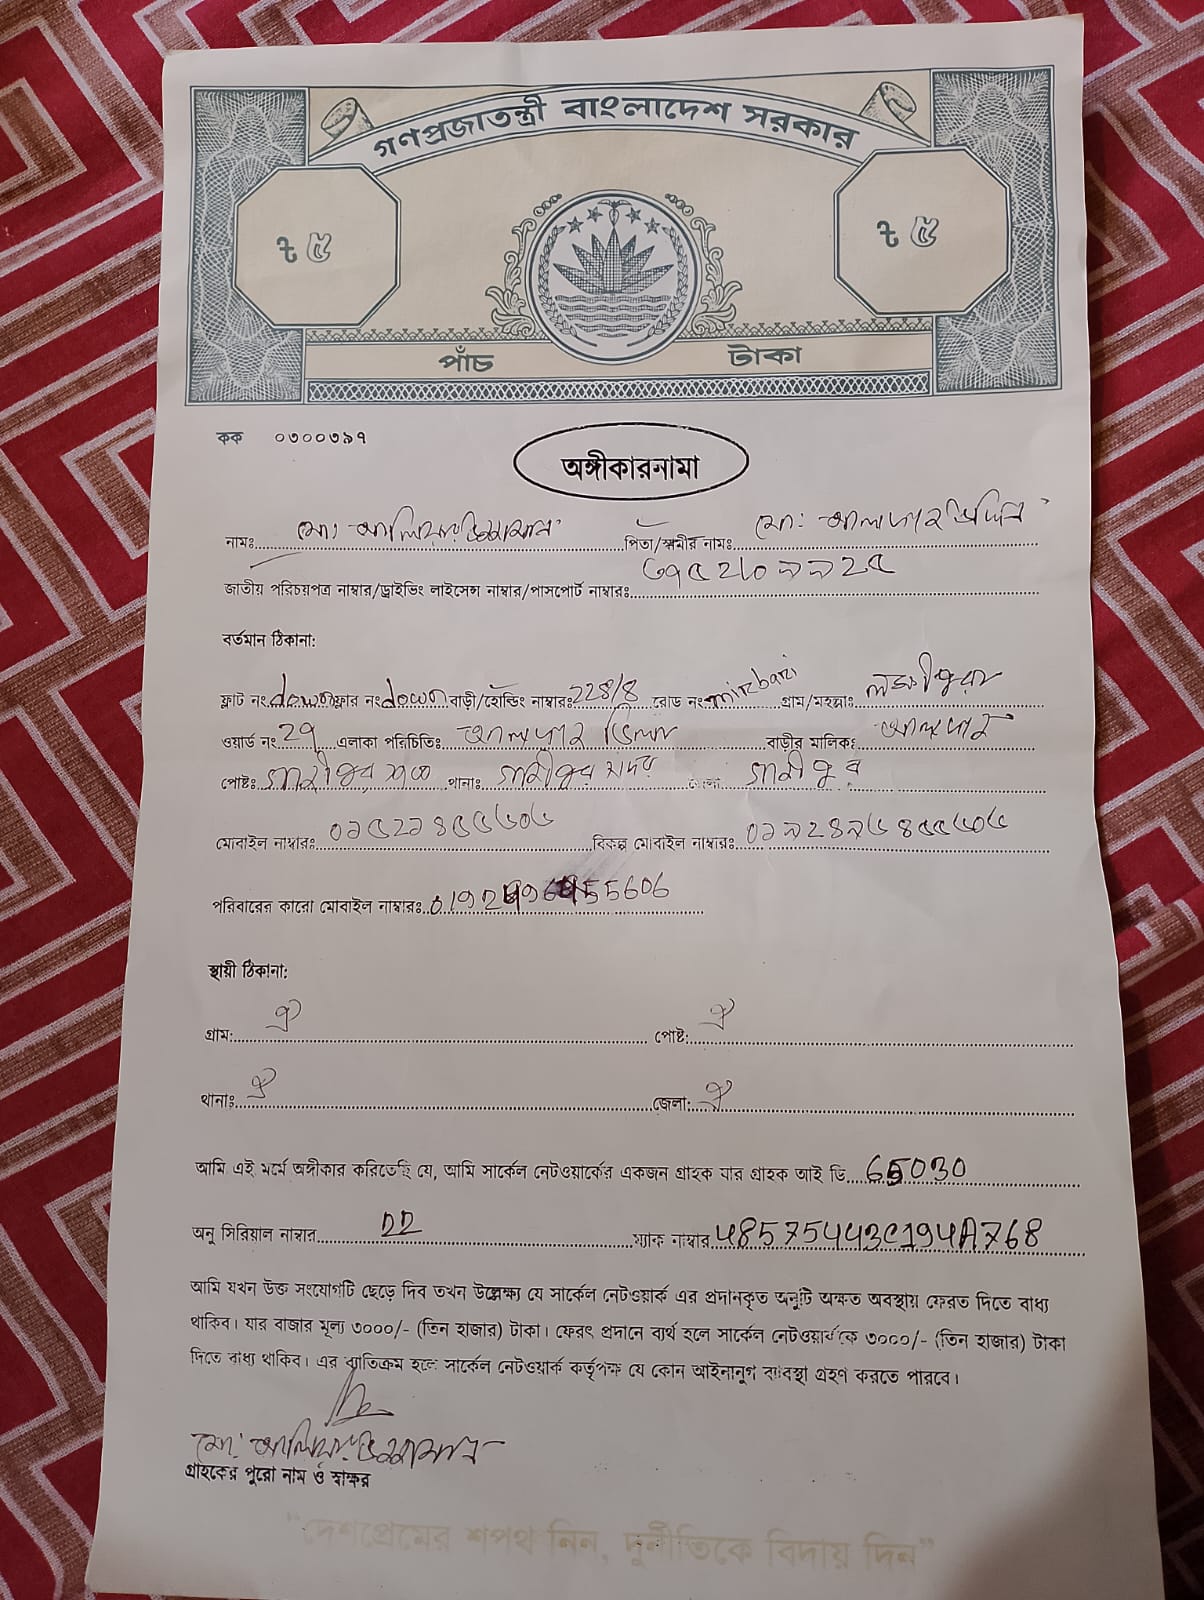 গণপ্রজাতন্ত্রী বাংলাদেশ সরকার
৳ ৫
৳ ৫
পাঁচ টাকা
কক ০৩০০৩৯৭
অঙ্গীকারনামা
নামঃ মোঃ পিতা/স্বামীর নামঃ মোঃ
জাতীয় পরিচয়পত্র নাম্বার/ড্রাইভিং লাইসেন্স নাম্বার/পাসপোর্ট নাম্বারঃ
বর্তমান ঠিকানা:
ফ্লাট নং down ফ্লোর নং down বাড়ী/হোল্ডিং নাম্বারঃ রোড নং mirbari গ্রাম/মহল্লাঃ লক্ষীপুরা
ওয়ার্ড নং 29 এলাকা পরিচিতিঃ বাড়ীর মালিকঃ
পোষ্টঃ গাজীপুর থানাঃ গাজীপুর সদর গাজীপুর
মোবাইল নাম্বারঃ বিকল্প মোবাইল নাম্বারঃ
পরিবারের কারো মোবাইল নাম্বারঃ
স্থায়ী ঠিকানা:
গ্রাম: ঐ পোষ্ট: ঐ
থানাঃ ঐ জেলা: ঐ
আমি এই মর্মে অঙ্গীকার করিতেছি যে, আমি সার্কেল নেটওয়ার্কের একজন গ্রাহক যার গ্রাহক আই ডি 65030
অনু সিরিয়াল নাম্বার ম্যাক নাম্বার 48575443C194A768
আমি যখন উক্ত সংযোগটি ছেড়ে দিব তখন উল্লেক্ষ্য যে সার্কেল নেটওয়ার্ক এর প্রদানকৃত অনুটি অক্ষত অবস্থায় ফেরত দিতে বাধ্য
থাকিব। যার বাজার মূল্য ৩০০০/- (তিন হাজার) টাকা। ফেরৎ প্রদানে ব্যর্থ হলে সার্কেল নেটওয়ার্ককে ৩০০০/- (তিন হাজার) টাকা
দিতে বাধ্য থাকিব। এর ব্যতিক্রম হলে সার্কেল নেটওয়ার্ক কর্তৃপক্ষ যে কোন আইনানুগ ব্যবস্থা গ্রহণ করতে পারবে।
মোঃ
গ্রাহকের পুরো নাম ও স্বাক্ষর
"দেশপ্রেমের শপথ নিন, দুর্নীতিকে বিদায় দিন"